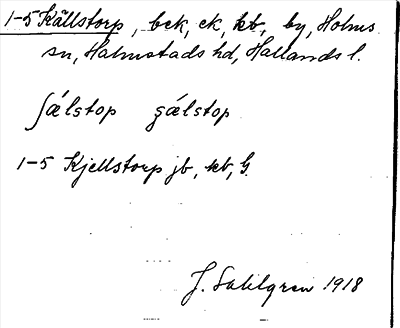 1-5 Källstorp, bck, ck, kb, by, Holms
sn, Halmstads hd, Hallands l.
ʃǽlstop gǽlstop
1-5 Kjellstorp jb, kb, G.
J. Sahlgren 1918